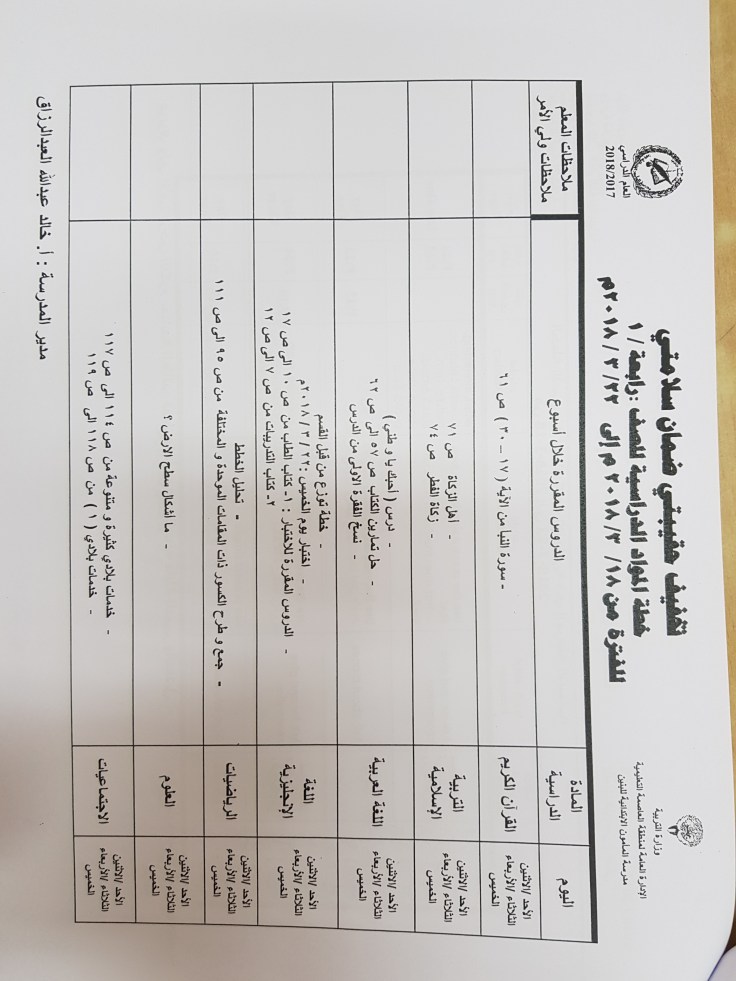 وزارة التربية
الإدارة العامة لمنطقة العاصمة التعليمية
مدرسة المأمون الابتدائية للبنين
تخفيف حقيبتي ضمان سلامتي
خطة المواد الدراسية للصف : رابعة / ١
للفترة من ١٨ / ٣ / ٢٠١٨ م إلى ٢٢ / ٣ / ٢٠١٨م
العام الدراسي
2018/2017
اليوم
المادة الدراسية
الدروس المقررة خلال أسبوع
ملاحظات المعلم
ملاحظات ولي الأمر
الأحد /الاثنين
الثلاثاء /الأربعاء
الخميس
القرآن الكريم
- سورة النبأ من الآية ( ١٧ – ٣٠ ) ص ٦١
الأحد /الاثنين
الثلاثاء /الأربعاء
الخميس
التربية الإسلامية
- أهل الزكاة ص ٧١
- زكاة الفطر ص ٧٤
الأحد /الاثنين
الثلاثاء /الأربعاء
الخميس
اللغة العربية
- درس ( أحبك يا وطني )
- حل تمارين الكتاب ص ٥٧ الى ص ٦٢
- نسخ الفقرة الاولى من الدرس
الأحد /الاثنين
الثلاثاء /الأربعاء
الخميس
اللغة الإنجليزية
- خطة توزع من قبل القسم
- اختبار يوم الخميس : ٢٢ / ٣ / ٢٠١٨م
- الدروس المقررة للاختبار : ١- كتاب الطالب من ص ١٠ الى ص ١٧
٢- كتاب التدريبات من ص ٧ الى ص ١٢
الأحد /الاثنين
الثلاثاء /الأربعاء
الخميس
الرياضيات
- تحليل الخطط
- جمع و طرح الكسور ذات المقامات الموحدة و المختلفة من ص ٩٥ الى ص ١١١
الأحد /الاثنين
الثلاثاء /الأربعاء
الخميس
العلوم
- ما أشكال سطح الارض ؟
الأحد /الاثنين
الثلاثاء /الأربعاء
الخميس
الاجتماعيات
- خدمات بلادي كثيرة و متنوعة من ص ١١٤ الى ص ١١٧
- خدمات بلادي ( ١ ) من ص ١١٨ الى ص ١١٩
مدير المدرسة : أ. خالد عبدالله العبدالرزاق